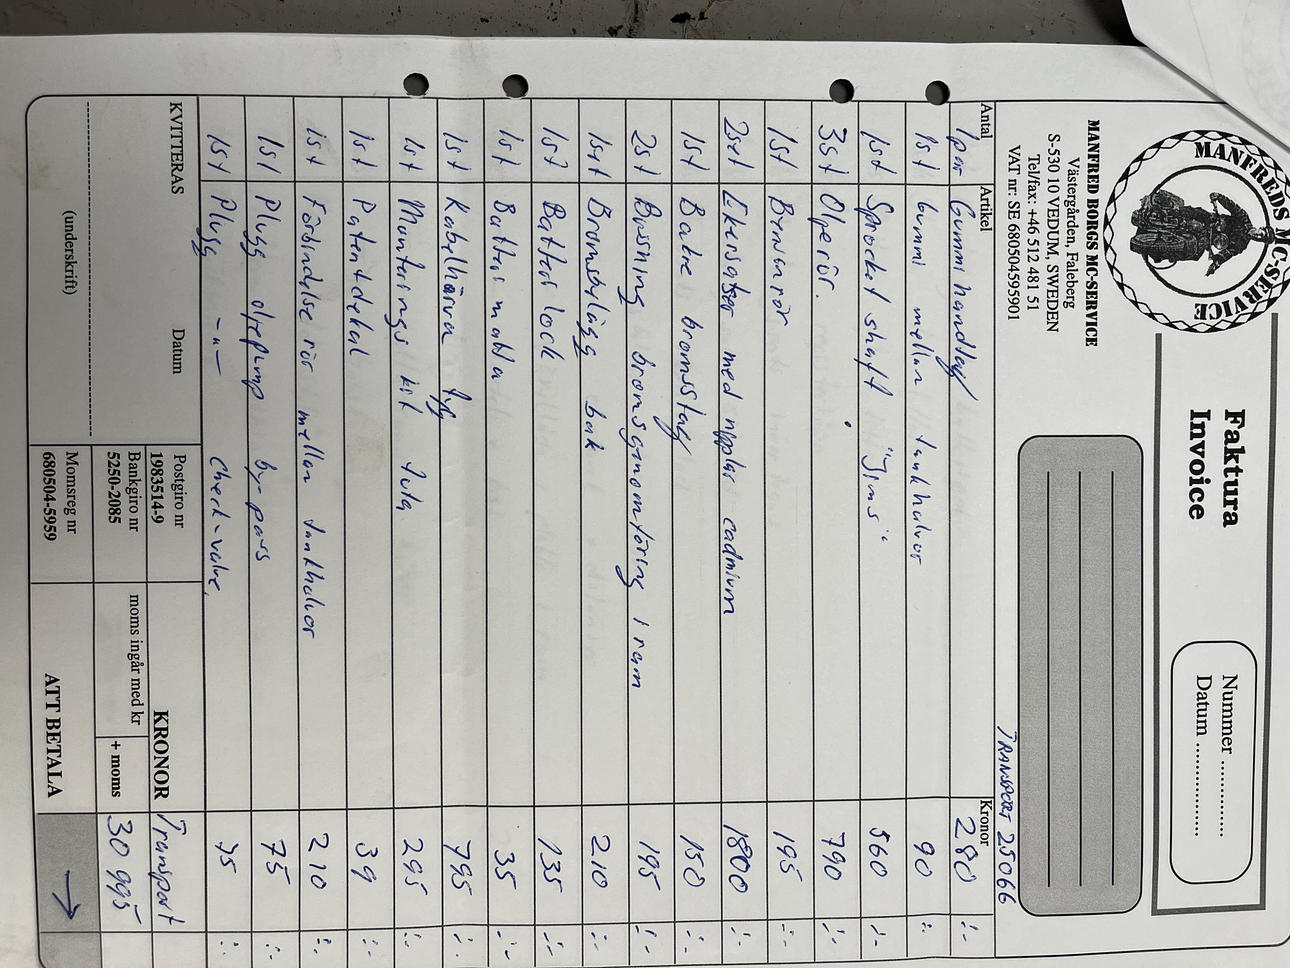 MANFREDS MC-SERVICE
Faktura
Invoice
Nummer ............
Datum ...............
MANFRED BORGS MC-SERVICE
Västergården, Faleberg
S-530 10 VEDUM, SWEDEN
Tel/fax: +46 512 481 51
VAT nr: SE 680504595901
TRANSPORT 25066
Antal Artikel Kronor
1par Gummi handtag 280 :-
1st Gummi mellan tankhalvor 90 :-
1st Sprocket shaft "Jims" 560 :-
3st Oljerör. 790 :-
1st Bensinrör 195 :-
2set Ekersatser med nipplar cadmium 1800 :-
1st Bakre bromsstag 150 :-
2st Bussning bromsgenomföring i ram 195 :-
1set Bromsbelägg bak 210 :-
1st Batteri lock 135 :-
1st Batteri matta 35 :-
1st Kabelhärva tyg 795 :-
1st Monterings kit tuta 295 :-
1st Patentdekal 39 :-
1st Förbindelse rör mellan tankhalvor 210 :-
1st Plugg oljepump by-pass 75 :-
1st Plugg -"- check-valve, 75 :-
KVITTERAS Datum
(underskrift)
Postgiro nr
1983514-9
Bankgiro nr
5250-2085
Momsreg nr
680504-5959
KRONOR Transport
moms ingår med kr + moms 30 995
ATT BETALA →